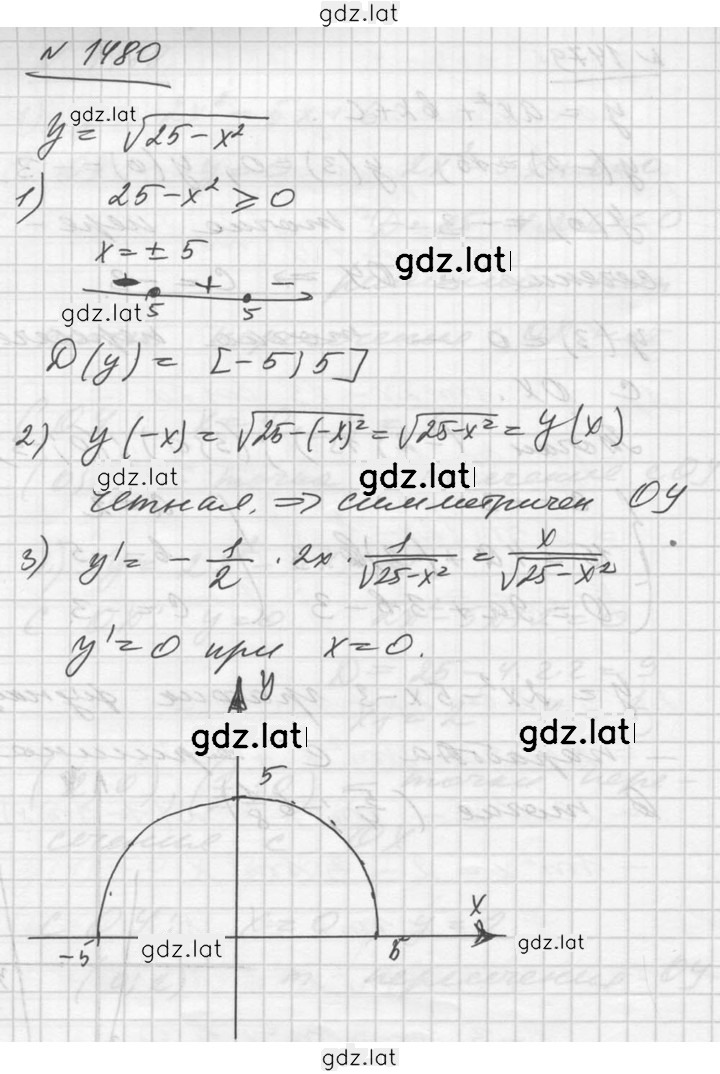 gdz.lat
N 1480
gdz.lat
y = √25-x²
1) 25-x² ⩾ 0
x = ± 5
gdz.lat
- + -
gdz.lat 5 5
D(y) = [-5; 5]
2) y(-x) = √25-(-x)² = √25-x² = y(x)
gdz.lat gdz.lat
четная, ⇒ симметричен OY
3) y' = - 1/2 · 2x · 1/√25-x² = x/√25-x²
y' = 0 при x = 0.
y
gdz.lat gdz.lat
5
x
-5 gdz.lat 5 gdz.lat
gdz.lat